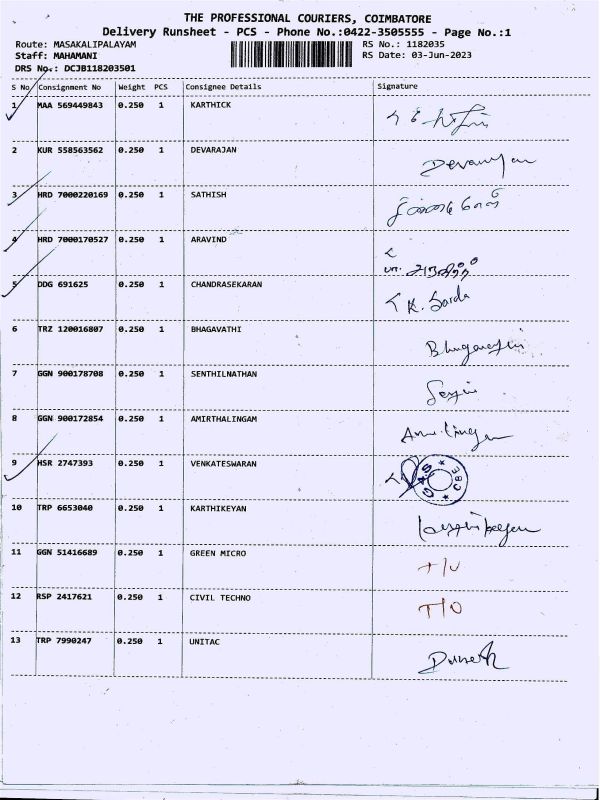 THE PROFESSIONAL COURIERS, COIMBATORE
Delivery Runsheet - PCS - Phone No.:0422-3505555 - Page No.:1
Route: MASAKALIPALAYAM
Staff: MAHAMANI
DRS No.: DCJB118203501
RS No.: 1182035
RS Date: 03-Jun-2023
S No Consignment No Weight PCS Consignee Details Signature
1 MAA 569449843 0.250 1 KARTHICK
2 KUR 558563562 0.250 1 DEVARAJAN
3 HRD 7000220169 0.250 1 SATHISH
4 HRD 7000170527 0.250 1 ARAVIND
5 DDG 691625 0.250 1 CHANDRASEKARAN K. Sarda
6 TRZ 120016807 0.250 1 BHAGAVATHI
7 GGN 900178708 0.250 1 SENTHILNATHAN
8 GGN 900172854 0.250 1 AMIRTHALINGAM
9 HSR 2747393 0.250 1 VENKATESWARAN G4S CBE
10 TRP 6653040 0.250 1 KARTHIKEYAN
11 GGN 51416689 0.250 1 GREEN MICRO
12 RSP 2417621 0.250 1 CIVIL TECHNO T/O
13 TRP 7990247 0.250 1 UNITAC